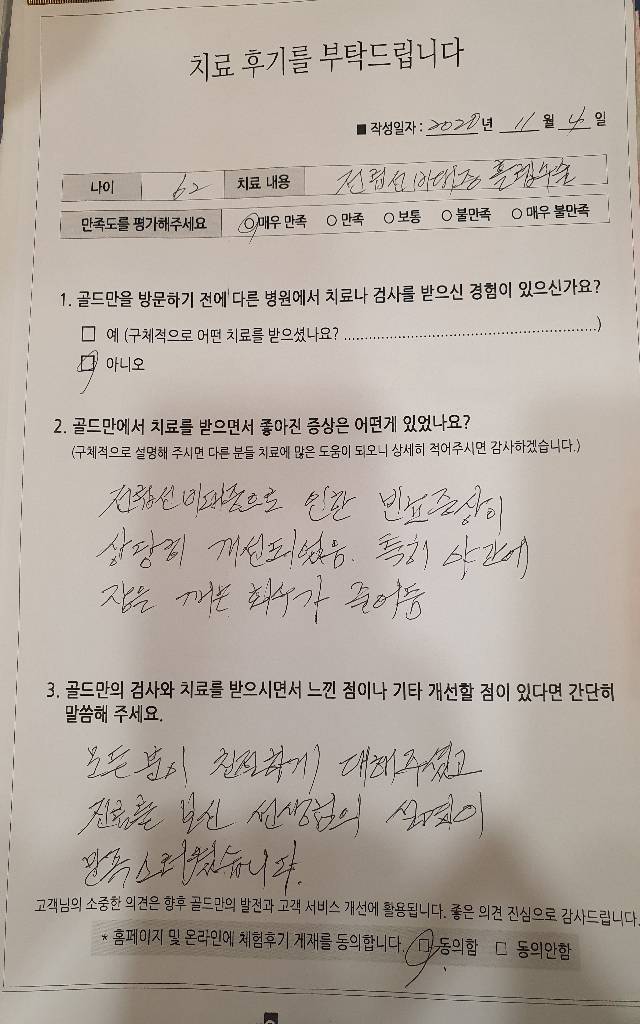 치료 후기를 부탁드립니다
■ 작성일자 : 2020년 11월 4일
나이 62 치료 내용 전립선비대증 홀렙수술
만족도를 평가해주세요 ○매우 만족 ○만족 ○보통 ○불만족 ○매우 불만족
1. 골드만을 방문하기 전에 다른 병원에서 치료나 검사를 받으신 경험이 있으신가요?
□ 예 (구체적으로 어떤 치료를 받으셨나요? ............................................................)
□ 아니오
2. 골드만에서 치료를 받으면서 좋아진 증상은 어떤게 있었나요?
(구체적으로 설명해 주시면 다른 분들 치료에 많은 도움이 되오니 상세히 적어주시면 감사하겠습니다.)
전립선비대증으로 인한 빈뇨증상이
상당히 개선되었음. 특히 야간에
잠을 깨는 회수가 줄어듬
3. 골드만의 검사와 치료를 받으시면서 느낀 점이나 기타 개선할 점이 있다면 간단히
말씀해 주세요.
모든 분이 친절하게 대해주셨고
진료를 보신 선생님의 설명이
만족스러웠습니다.
고객님의 소중한 의견은 향후 골드만의 발전과 고객 서비스 개선에 활용됩니다. 좋은 의견 진심으로 감사드립니다.
* 홈페이지 및 온라인에 체험후기 게재를 동의합니다. □ 동의함 □ 동의안함